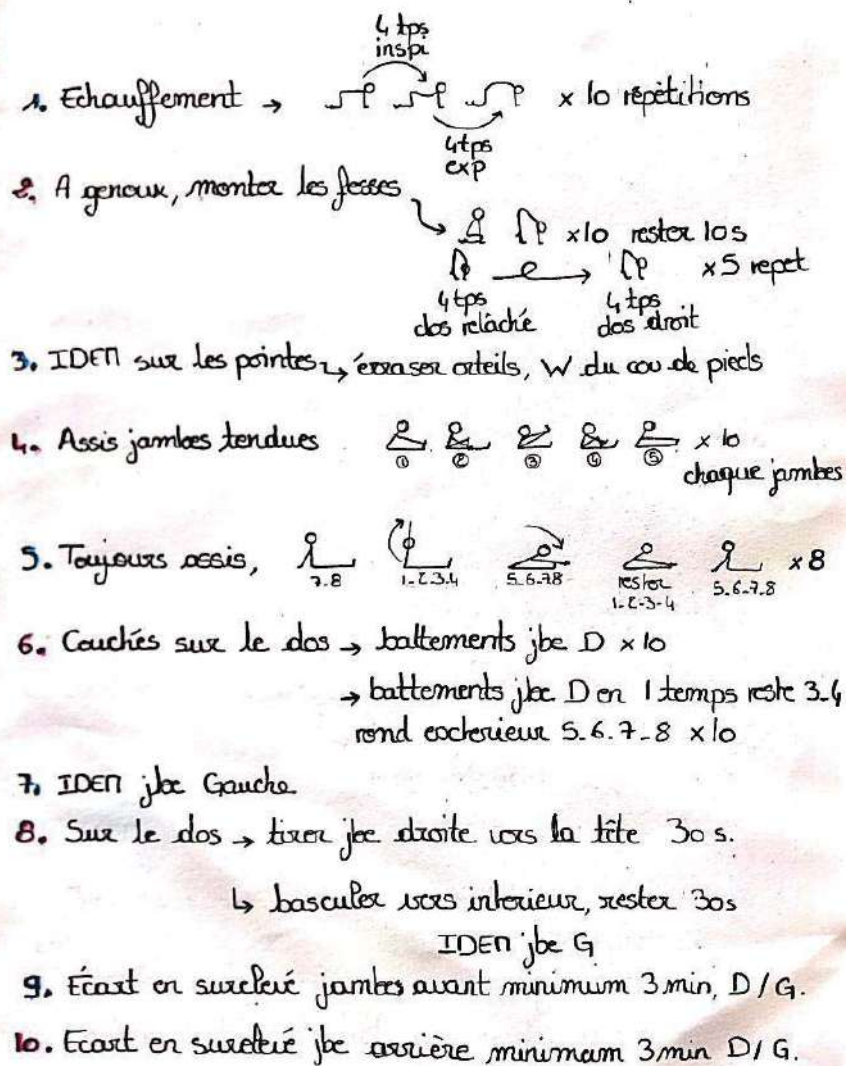 4 tps
inspi
1. Echauffement → x 10 répétitions
4tps
exp
2. A genoux, monter les fesses
x10 rester 10s
x5 repet
4 tps 4 tps
dos relâché dos droit
3. IDEM sur les pointes ↳ écraser orteils, W du cou de pieds
4. Assis jambes tendues x 10
① ② ③ ④ ⑤
chaque jambes
5. Toujours assis, x8
7.8 1-2.3.4 5.6.78 rester 5.6.7.8
1-2-3-4
6. Couchés sur le dos → battements jbe D x10
→ battements jbe D en 1 temps reste 3-4
rond exterieur 5.6.7-8 x10
7. IDEM jbe Gauche
8. Sur le dos → tirer jbe droite vers la tête 30 s.
↳ basculer vers interieur, rester 30s
IDEM jbe G
9. Écart en surelevé jambes avant minimum 3 min, D/G.
10. Ecart en surelevé jbe arrière minimum 3min D/G.